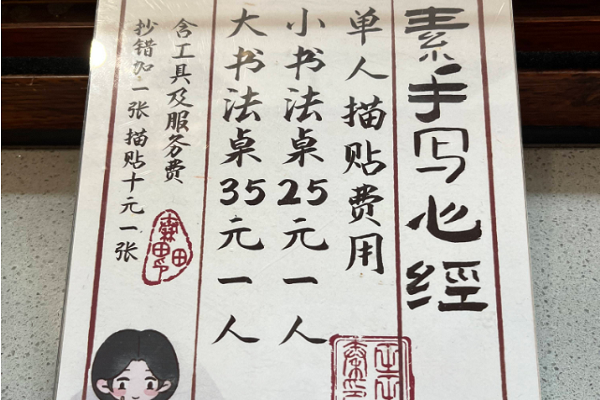 素手写心經
单人描贴费用
小书法桌25元一人
大书法桌35元一人
含工具及服务费
抄错加一张描贴十元一张